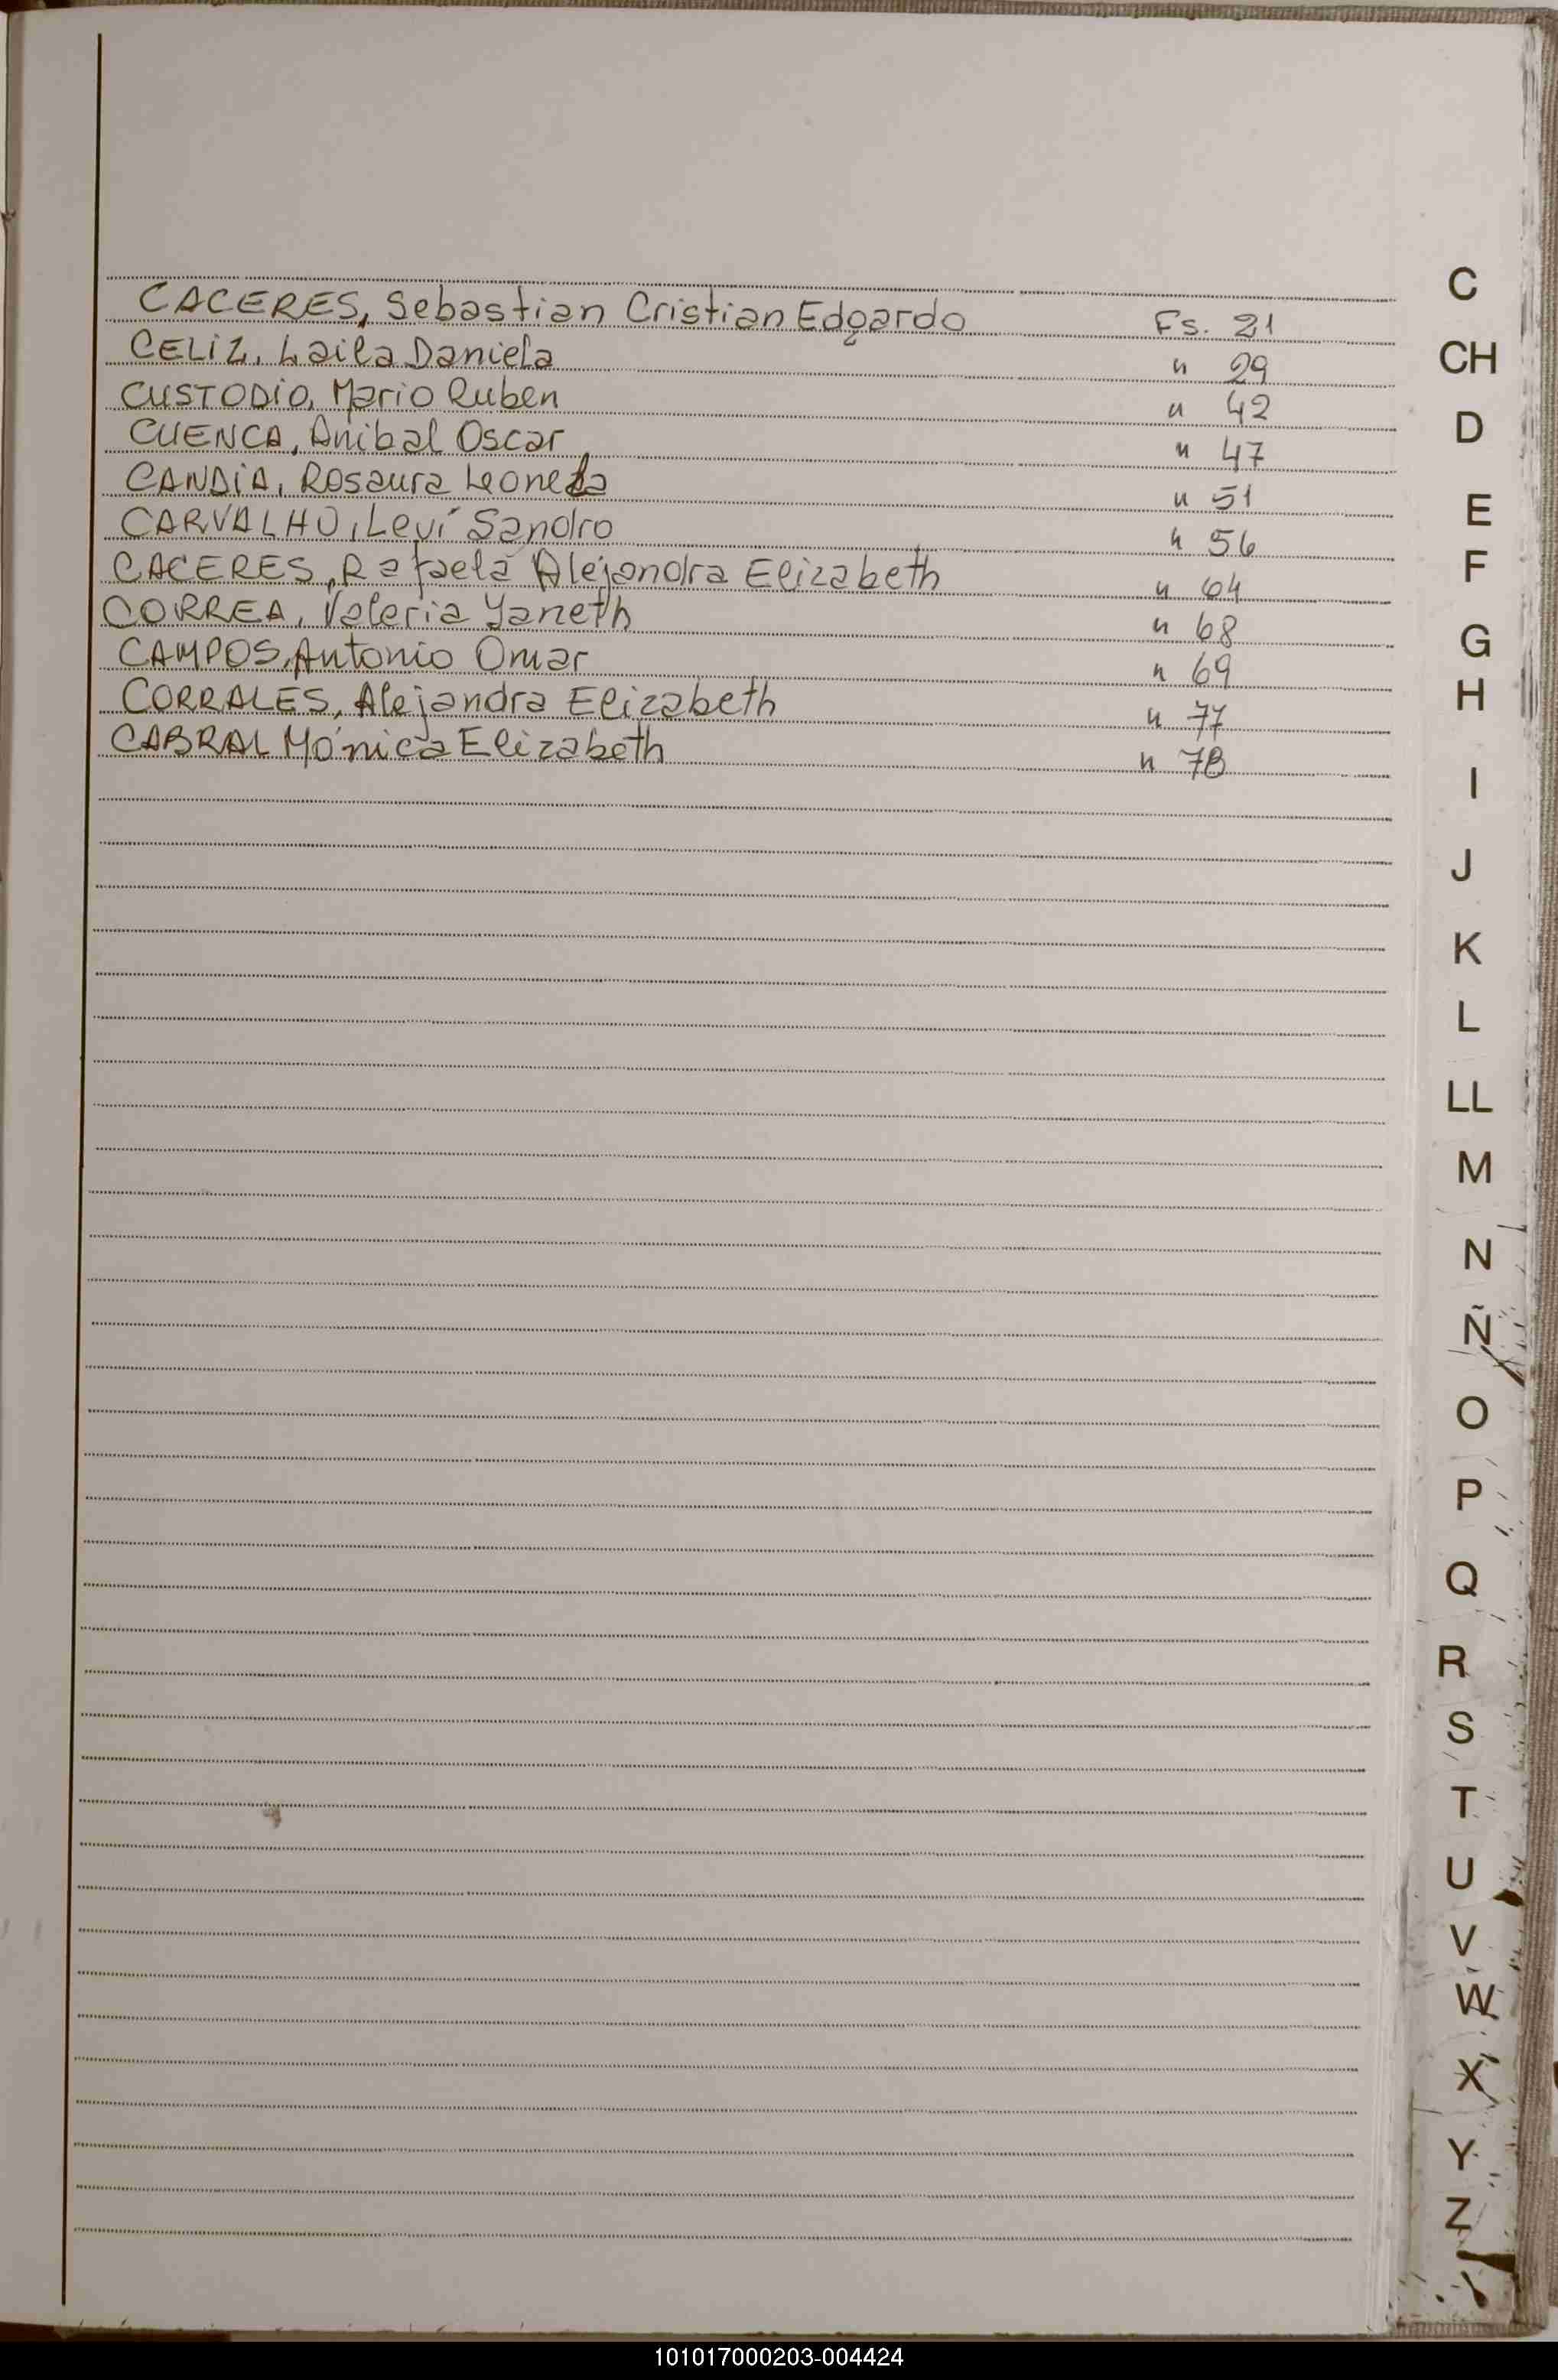 CACERES, Sebastian Cristian Edgardo Fs. 21
CELIZ, Laila Daniela " 29
CUSTODIO, Mario Ruben " 42
CUENCA, Anibal Oscar " 47
CANDIA, Rosaura Leonela " 51
CARVALHO, Leví Sandro " 56
CACERES, Rafaela Alejandra Elizabeth " 64
CORREA, Valeria Yaneth " 68
CAMPOS, Antonio Omar " 69
CORRALES, Alejandra Elizabeth " 77
CABRAL Mónica Elizabeth " 78
C
CH
D
E
F
G
H
I
J
K
L
LL
M
N
Ñ
O
P
Q
R
S
T
U
V
W
X
Y
Z
101017000203-004424